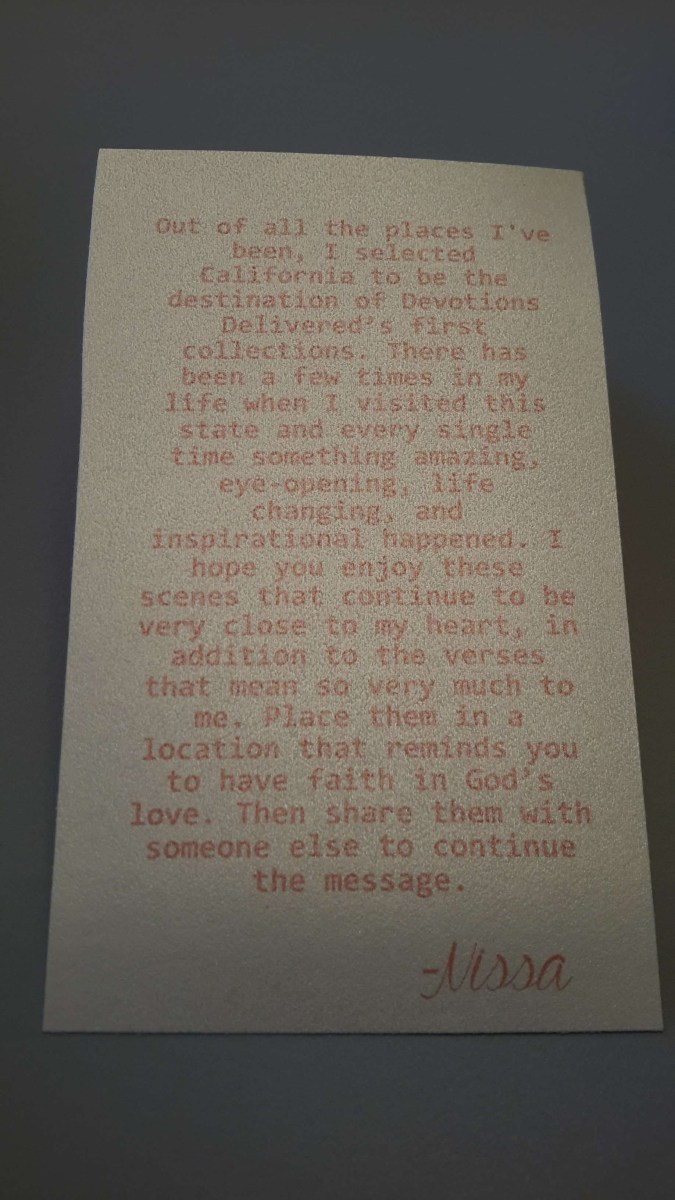 Out of all the places I've
been, I selected
California to be the
destination of Devotions
Delivered's first
collections. There has
been a few times in my
life when I visited this
state and every single
time something amazing,
eye-opening, life
changing, and
inspirational happened. I
hope you enjoy these
scenes that continue to be
very close to my heart, in
addition to the verses
that mean so very much to
me. Place them in a
location that reminds you
to have faith in God's
love. Then share them with
someone else to continue
the message.
-Nissa